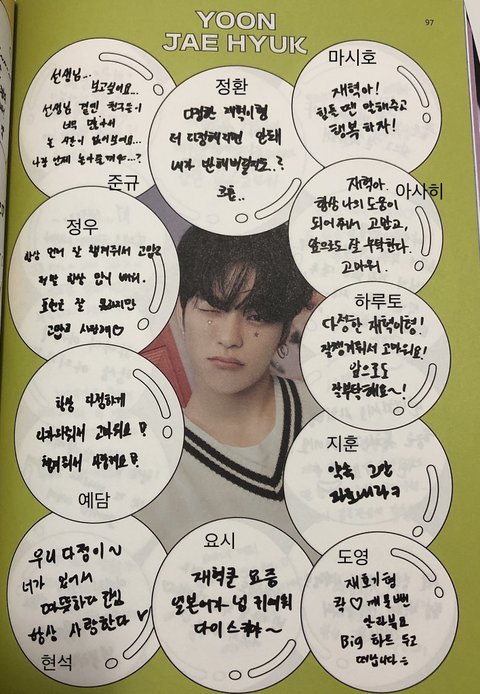 97
YOON
JAE HYUK
선생님...
보고싶어요...
선생님 곁엔 친구들이
너무 많아서
놀 시간이 없어보여요...
나랑 언제 놀아줄거야...?
준규
정환
다정한 재혁이형
더 다정해지면 안돼
내가 반해버릴지도..?
크흠..
마시호
재혁아!
힘든 땐 말해주고
행복하자!
아사히
재혁아.
항상 나의 도움이
되어줘서 고맙고,
앞으로도 잘 부탁한다.
고마워.
정우
항상 먼저 잘 챙겨줘서 고맙고
정말 항상 많이 배워.
표현은 잘 못하지만
고맙고 사랑해♡
하루토
다정한 재혁이형!
잘챙겨줘서 고마워요!
앞으로도
잘부탁해요~!
항상 다정하게
다가와줘서 고마워요
챙겨줘서 사랑해요
예담
지훈
약속 그만
우리 다정이~
너가 있어서
따뜻하다 단심
항상 사랑한다
현석
요시
재혁쿤 요즘
일본어가 넘 귀여워
다이스키~
도영
재효기형
콱♡깨물뻔
알라뷰요
Big 하트 두고
떠납니다